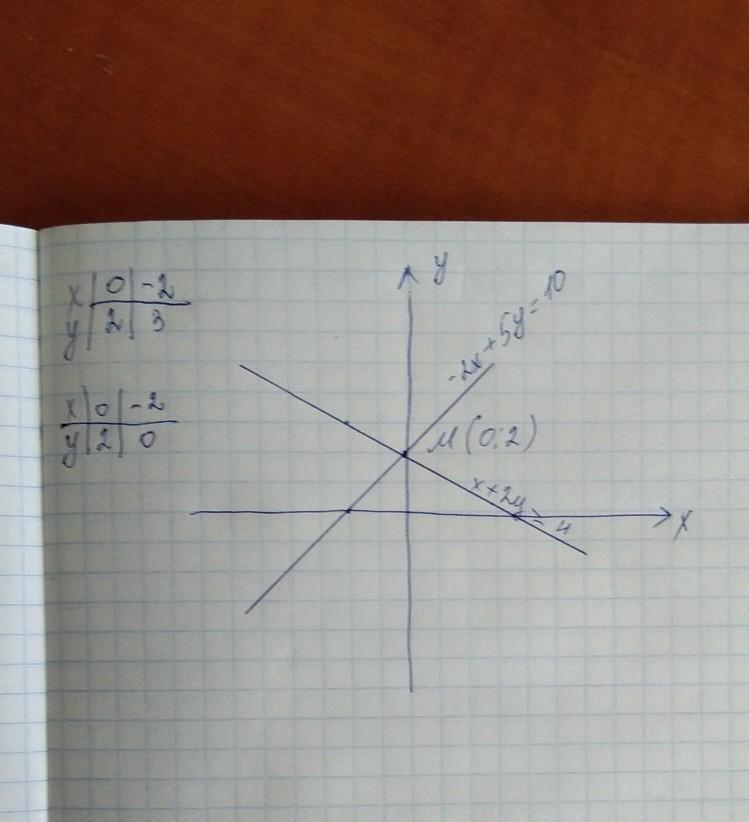 x | 0 | -2
y | 2 | 3
x | 0 | -2
y | 2 | 0
y
-2x+5y=10
M(0;2)
x+2y=4
x